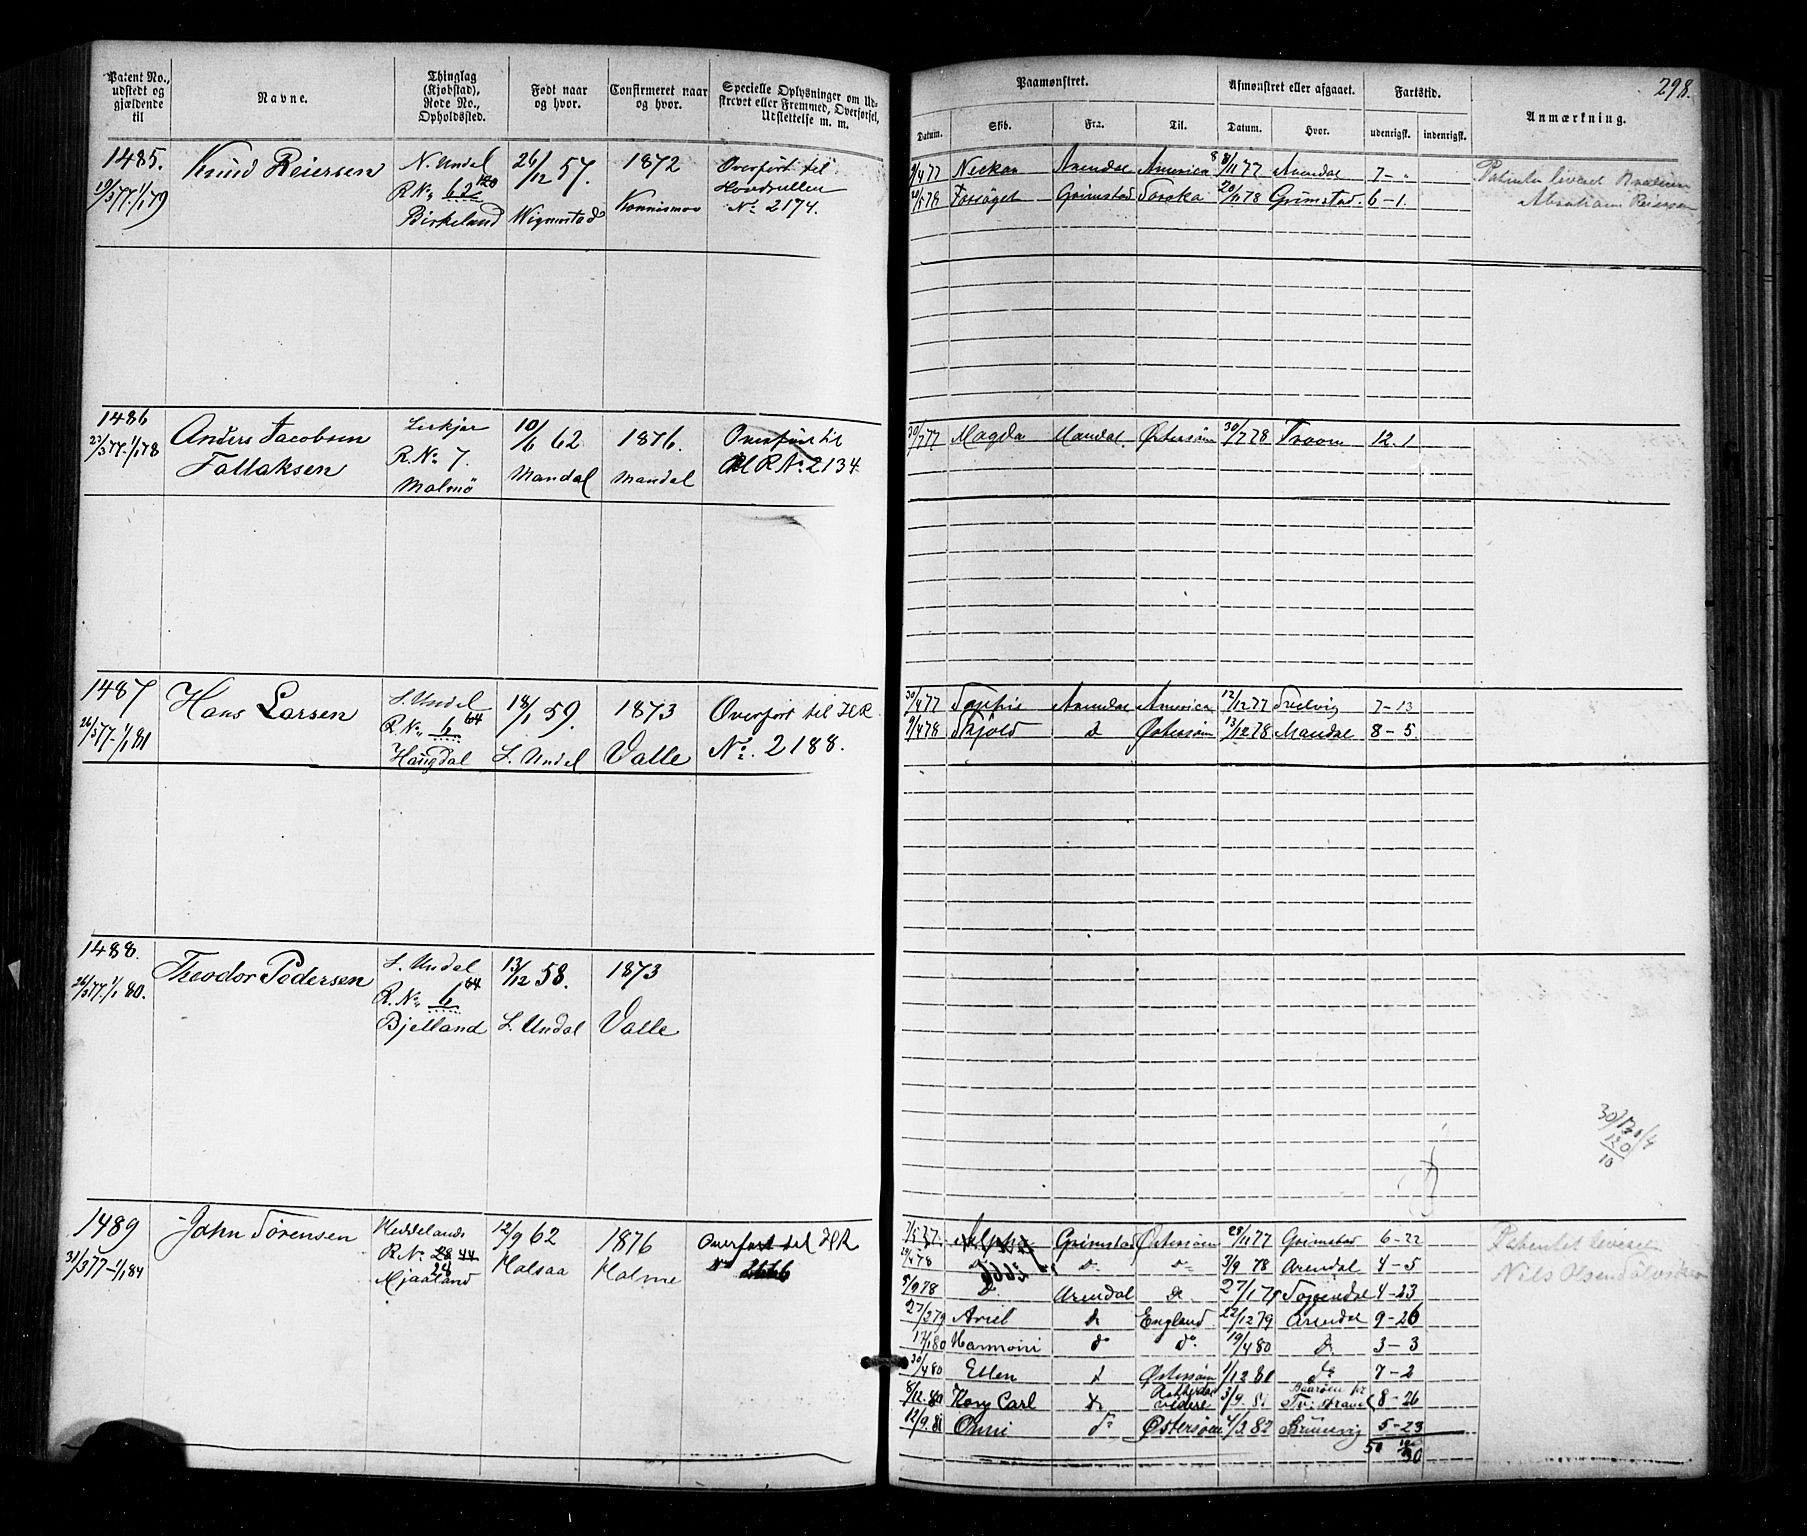 298.
Patent No., udstedt og gjældende til
Navne.
Thinglag (Kjøbstad), Rode No., Opholdssted.
Født naar og hvor.
Confirmeret naar og hvor.
Specielle Oplysninger om Udskrevet eller Fremmed, Overførsel, Udslettelse m. m.
Paamønstret.
Datum.
Skib.
Fra.
Til.
Afmønstret eller afgaaet.
Datum.
Hvor.
Fartstid.
udenrigsk.
indenrigsk.
Anmærkning.
1485. Knud Reiersen N. Undal 26/12 57. 1872 Overført til
19/3 77-1/1 79 R No 62 120 Hovedrullen
Birkeland Wigmostad Konnismov No 2174.
9/4 77 Arendal America 8/11 77 Arendal 7-
Grimstad Soroka 20/11 78 Grimstad 6-1.
Patentet leveret Broderen
Abraham Reiersen
1486 Anders Jacobsen 10/6 62 1876. Overført til
23/3 77-1/1 78 Tallaksen R. No 7. Mandal Mandal HR No 2134
Malmø
30/7 77 Magda Mandal Østersøen 30/7 78 12 1
1487 Hans Larsen S. Undal 18/1 59. 1873 Overført til HR
26/3 77-1/1 81 R No 6 64 No. 2188.
Haugdal S. Undal Valle
30/4 77 Arendal America 12/12 77 Svelvig 7-13
9/4 78 Skjold d Østersøen 13/12 78 Mandal 8-5
1488. Theodor Pedersen S. Undal 13/12 58. 1873
26/3 77-1/1 80. R. No 6 64
Bjelland S. Undal Valle
1489 John Sørensen 12/9 62 1876 Overført til HR
31/3 77-1/1 84 R No 28 44 Halsaa Halme No 2666
28
7/5 77 Grimstad Østersøen 28/11 77 Grimstad 6-22
29/4 78 do do 3/9 78 Arendal 4-5
5/9 78 Arendal do 27/1 79 4-23
27/2 79 Ariel do England 22/12 79 Arendal 9-26
17/1 80 Harmoni do do 19/4 80 do 3-3
30/4 80 Ellen d Østersøen 1/12 80 do 7-2
8/12 80 Kong Carl do videre 3/9 81 8-26
12/9 81 do Østersøen 4/3 82 5-23
Patentet leveret
Nils Olsen